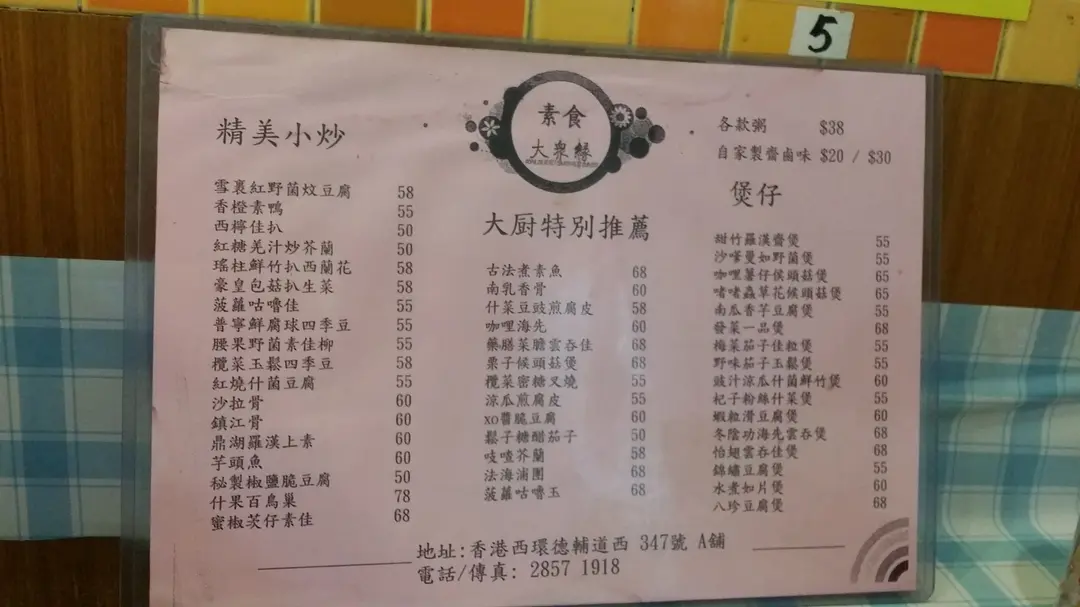 5
素食
大眾緣
精美小炒
雪裏紅野菌炆豆腐 58
香橙素鴨 55
西檸佳扒 50
紅糖羌汁炒芥蘭 50
瑤柱鮮竹扒西蘭花 58
豪皇包菇扒生菜 58
菠蘿咕嚕佳 55
普寧鮮腐球四季豆 55
腰果野菌素佳柳 55
欖菜玉鬆四季豆 58
紅燒什菌豆腐 55
沙拉骨 60
鎮江骨 60
鼎湖羅漢上素 60
芋頭魚 60
秘製椒鹽脆豆腐 50
什果百鳥巢 78
蜜椒茨仔素佳 68
大厨特別推薦
古法煮素魚 68
南乳香骨 60
什菜豆豉煎腐皮 58
咖哩海先 60
藥膳菜膽雲吞佳 68
栗子候頭菇煲 68
欖菜密糖叉燒 55
涼瓜煎腐皮 55
xo醬脆豆腐 60
鬆子糖醋茄子 50
吱喳芥蘭 58
法海浦團 68
菠蘿咕嚕玉 68
各款粥 $38
自家製齋鹵味 $20 / $30
煲仔
甜竹羅漢齋煲 55
沙嗲曼如野菌煲 55
咖哩薯仔候頭菇煲 65
啫啫蟲草花候頭菇煲 65
南瓜香芋豆腐煲 55
發菜一品煲 68
梅菜茄子佳粒煲 55
野味茄子玉鬆煲 55
豉汁涼瓜什菌鮮竹煲 60
杞子粉絲什菜煲 55
蝦粒滑豆腐煲 60
冬陰功海先雲吞煲 68
怡翅雲吞佳煲 68
錦繡豆腐煲 55
水煮如片煲 60
八珍豆腐煲 68
地址:香港西環德輔道西 347號 A舖
電話/傳真: 2857 1918